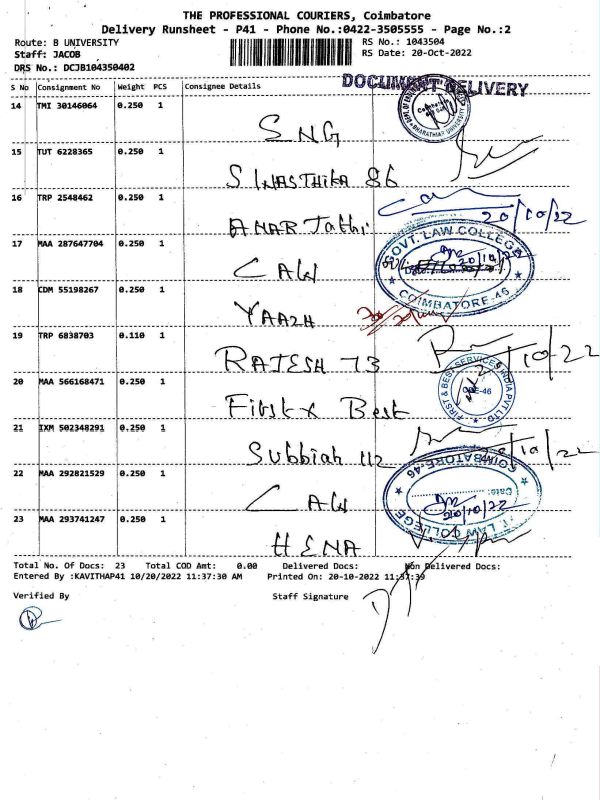 THE PROFESSIONAL COURIERS, Coimbatore
Delivery Runsheet - P41 - Phone No.:0422-3505555 - Page No.:2
Route: B UNIVERSITY RS No.: 1043504
Staff: JACOB RS Date: 20-Oct-2022
DRS No.: DCJB104350402
DOCUMENT DELIVERY
S No Consignment No Weight PCS Consignee Details
14 TMI 30146064 0.250 1
SNG
BHARATHIAR UNIVERSITY
15 TUT 6228365 0.250 1
SWASTHIKA 86
16 TRP 2548462 0.250 1
20/10/22
AMAR Jathi
17 MAA 287647704 0.250 1
GOVT. LAW COLLEGE
20/10/22
COIMBATORE-46
CAW
18 CDM 55198267 0.250 1
YAAZH
19 TRP 6838703 0.110 1
RAJESH 73
20 MAA 566168471 0.250 1
FIRST & BEST SERVICES INDIA PVT LTD
CBE-46
First & Best
21 IXM 502348291 0.250 1
Subbiah 112
22 MAA 292821529 0.250 1
COIMBATORE-46
Date:
20/10/22
LAW COLLEGE
CAW
23 MAA 293741247 0.250 1
HENA
Total No. Of Docs: 23 Total COD Amt: 0.00 Delivered Docs: Non Delivered Docs:
Entered By :KAVITHAP41 10/20/2022 11:37:30 AM Printed On: 20-10-2022 11:37:39
Verified By Staff Signature